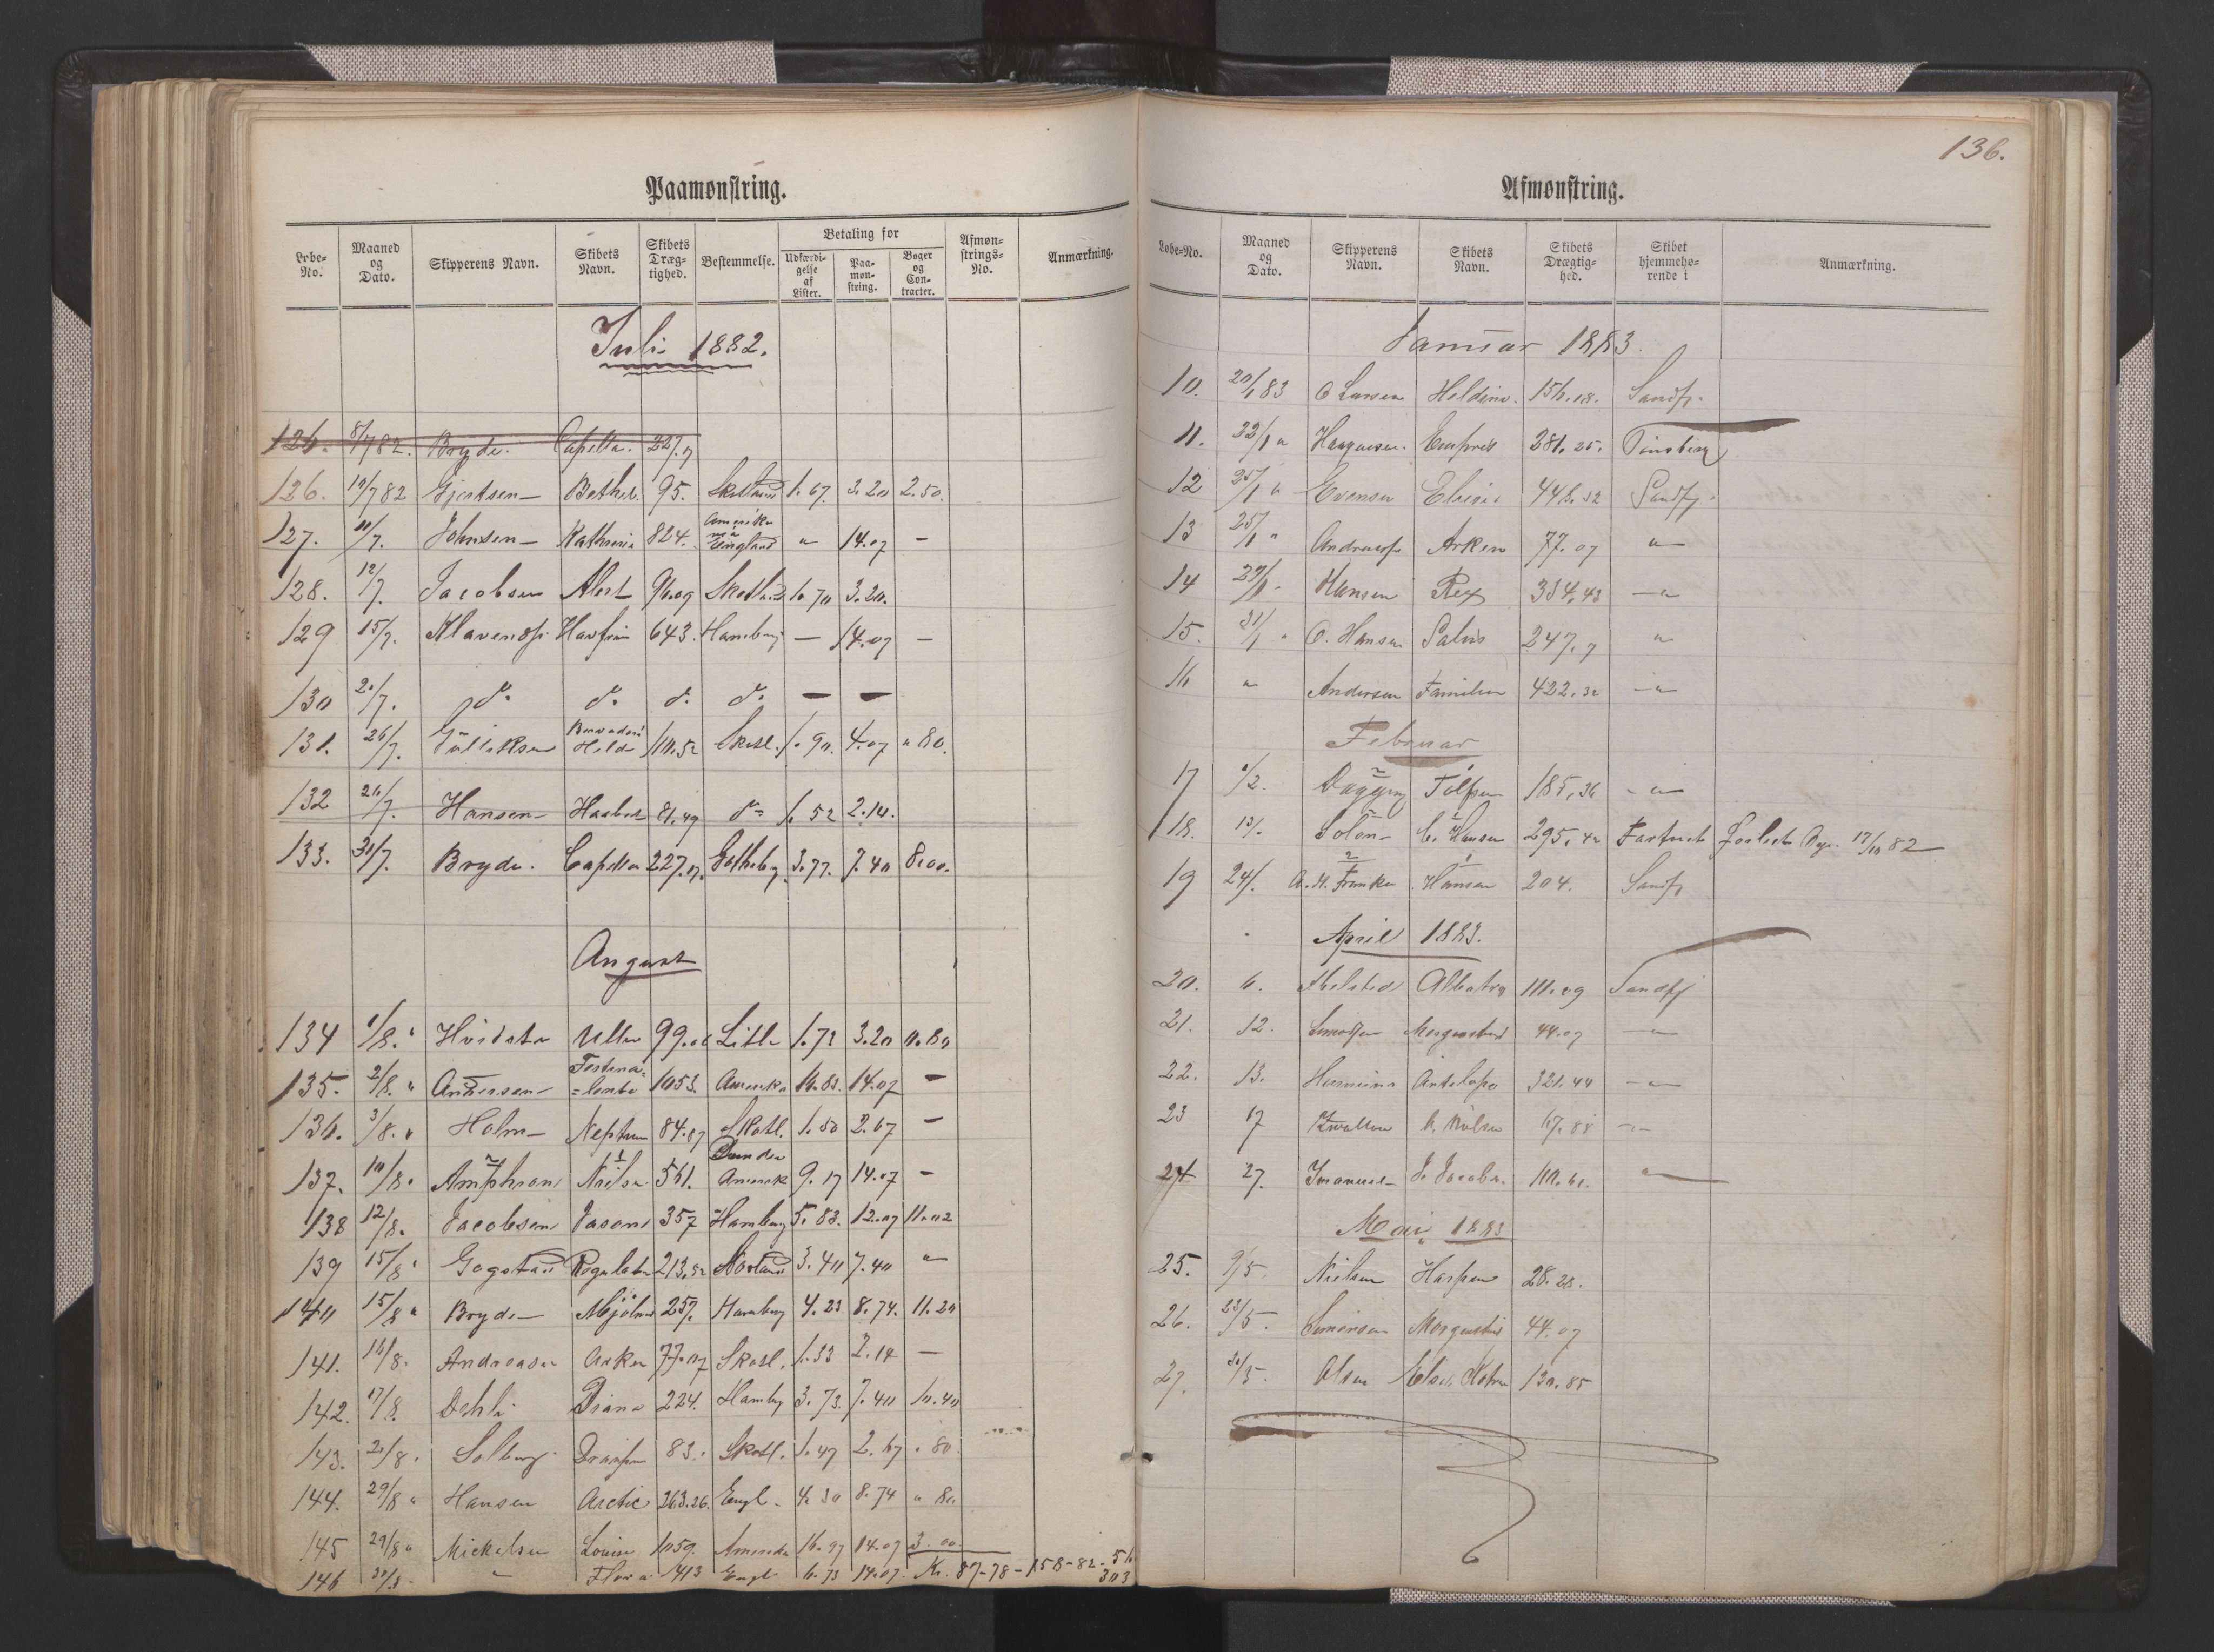 136.
Paamønstring.
Løbe-No. Maaned og Dato. Skipperens Navn. Skibets Navn. Skibets Dræg-tighed. Bestemmelse. Betaling for Udfærdi-gelse af Lister. Paa-møn-string. Bøger og Con-tracter. Afmøn-strings-No. Anmærkning.
Juli 1882.
126. 8/7 82. Bryde. Capella. 227.7
126. 10/7 82 Gjertsen Bethel 95. Skotland 1.67. 3.20 2.50.
127. 11/7. Johnsen Kathrine 824. Amerika England " 14.07 —
128. 12/7. Jacobsen Alert 96.09 Skotland 1.70 3.20.
129 15/7. Klavenes Havfrun 643. Hamburg — 14.07 —
130 20/7. do do do do — —
131. 26/7. Gulliksen Hilda 110.52 Skotl. 1.90. 4.07 " 80.
132 26/7. Hansen Haabet 81.49 do 1.52 2.14.
133. 31/7. Bryde. Capella 227.07. Gotheborg 3.77. 7.40 8.00.
August
134 1/8. " Hvidsten Ulla 99.06 Lith 1.72 3.20 0.80
135. 2/8. " Andersen Festina=lente 1053. Amerika 16.83. 14.07 —
136. 3/8. " Holm Neptun 84.87 Skotl. 1.50 2.67 —
137. 10/8. Amphion Nielsen 561. Amerik 9.17 14.07 —
138 12/8. Jacobsen Jason 357 Hamburg 5.83. 12.07 11.02
139 15/8 " Gogstad Regulator 213.52 Norland 3.40 7.40 "
140 15/8 " Bryde Mjølner 257. Hamburg 4.23 8.74. 11.20
141. 16/8. Andreasen Arken 77.07 Skotl. 1.33 2.14 —
142. 17/8. Dehli Diana 224. Hamburg 3.73. 7.40 10.40
143. 21/8. Solberg 83. Skotl. 1.47 2.67 " 80
144. 29/8 " Hansen Arctic 263.26. Engl. 4.30 8.74 " 80
145 29/8 " Mickelsen Louise 1059. Amerika 16.97 14.07 3.00.
146 " Flora 413 Engl. 6.73 14.07. Kr. 87-78-158-82-56
303
Afmønstring.
Løbe-No. Maaned og Dato. Skipperens Navn. Skibets Navn. Skibets Drægtig-hed. Skibet hjemmehø-rende i Anmærkning.
Januar 1883.
10. 20/1 83 O Larsen 156.18. Sandfj.
11. 22/1 " Haagensen. Empress 281.25. Tønsberg
12 25/1 " Evensen 448.32 Sandfj.
13 25/1 " Andreas Arken 77.07 "
14 29/1 " Hansen Rex 354.43 — " —
15. 31/1 " O. Hansen Salus 247.7 "
16 " Andersen Familien 422.32 — " —
Februar
17 1/2. 185.36 — " —
18. 13/. Solon C. Hansen 295.42 Farsund Forlist 17/10 82
19 24/. A. H. Franke Hansen 204. Sandfj
April 1883.
20. 6. Albatros 111.09 Sandfj
21. 12. Simonsen Morgenstund 44.07 — " —
22. 13. Antelope 321.44 — " —
23 17 67.88 — " —
24 27. Immanuel J. Jacobs. 110.61. "
Mai 1883
25. 9/5. Nielsen Harpen 28.28.
26. 23/5. Simonsen Morgenstund 44.07
27. 31/5. Olsen Else Katrine 130.85